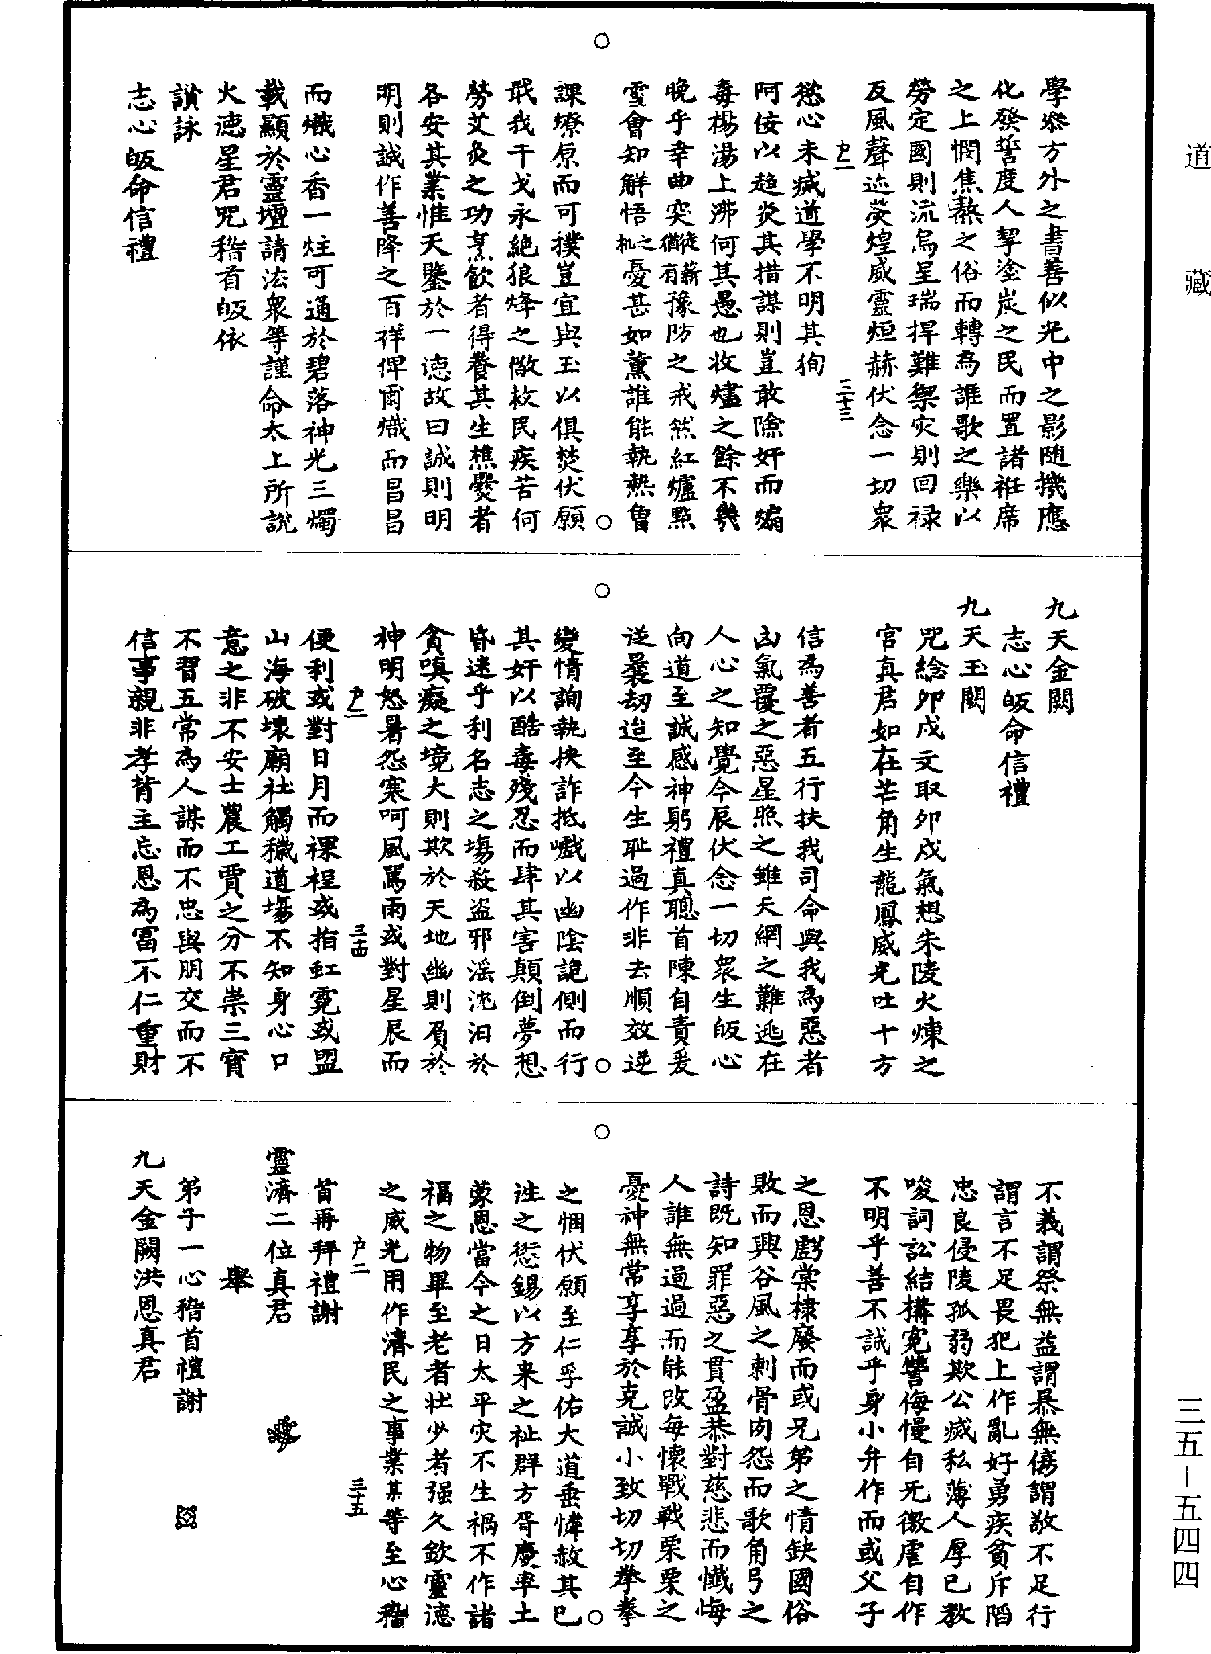 道藏
學參方外之書善似光中之影隨機應
化發誓度人挈塗炭之民而置諸袵席
之上憫焦熬之俗而轉為謳歌之樂以
勞定國則流烏呈瑞捍難禦灾則回祿
反風聲迹熒煌威靈烜赫伏念一切衆
户一
三十三
慾心未臧道學不明其徇
阿佞以趍炎其措謀則豈敢險奸而煽
毒楊湯上沸何其愚也收燼之餘不幾
晚乎幸曲突徙薪猶有豫防之戒然紅爐㸃
雪會知解悟之机憂甚如薰誰能執熱曾
課燎原而可撲豈宜與玉以俱焚伏願
戢我干戈永絶狼烽之儆救民疾苦何
勞艾灸之功烹飲者得養其生樵爨者
各安其業惟天鑒於一德故曰誠則明
明則誠作善降之百祥俾爾熾而昌昌
而熾心香一炷可通於碧落神光三燭
載顯於靈壇請法衆等謹命太上所説
火德星君咒稽首皈依
讃詠
志心皈命信禮
九天金闕
志心皈命信禮
九天玉闕
咒絵卯戌文取卯戌氣想朱陵火煉之
官真君如在芒角生龍鳳威光吐十方
信為善者五行扶我司命與我為惡者
凶氣覆之惡星照之雖天網之難逃在
人心之知覺今辰伏念一切衆生皈心
向道至誠感神躬禮真聰首陳自責爰
逆曩劫迨至今生耻過作非去順效逆
變情詢執挾詐抵巇以幽陰詭側而行
其奸以酷毒殘忍而肆其害顛倒夢想
昏迷乎利名志之塲殺盗邪滛沈汨於
貪嗔癡之境大則欺於天地幽則屑於
神明怒暑怨寒呵風駡雨或對星辰而
户二
三十四
便利或對日月而裸裎或指虹霓或盟
山海破壞廟社觸穢道塲不知身心口
意之非不安士農工賈之分不崇三寳
不習五常為人謀而不忠與朋交而不
信事親非孝背主忘恩為富不仁重財
不義謂祭無益謂暴無傷謂敬不足行
謂言不足畏犯上作亂好勇疾貧斥䧟
忠良侵陵孤弱欺公滅私薄人厚已教
唆詞訟結搆寃讐侮慢自𠒋徼虐自作
不明乎善不誠乎身小弁作而或父子
之恩虧棠棣廢而或兄弟之情缺國俗
敗而興谷風之刺骨肉怨而歌角弓之
詩既知罪惡之貫盈恭對慈悲而懴悔
人誰無過過而能改每懷戰戰栗栗之
憂神無常享享於克誠小致切切拳拳
之悃伏願至仁孚佑大道垂憐赦其已
徃之愆錫以方来之祉群方胥慶率土
蒙恩當今之日太平灾不生禍不作諸
福之物畢至老者壯少者强久欽靈德
之威光用作濟民之事業某等至心稽
户二
三十五
首再拜禮謝
靈濟二位真君
舉
弟子一心稽首禮謝
九天金闕洪恩真君
三五—五四四